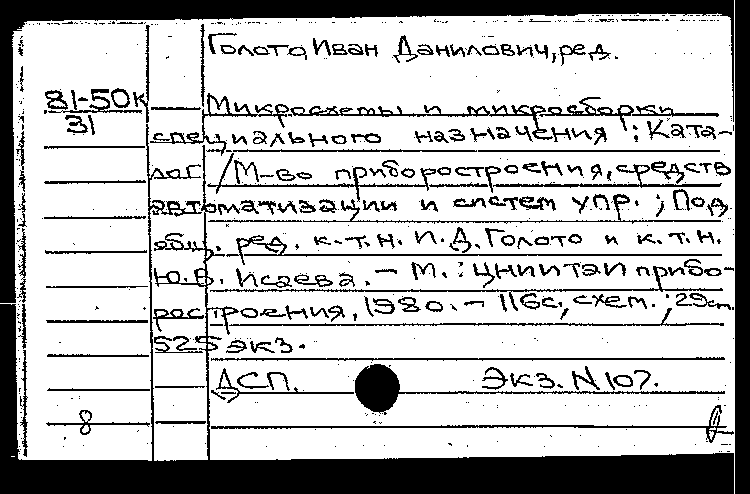 Голото, Иван Данилович, ред.
81-50к
31
Микросхемы и микросборки
специального назначения : Ката-
лог / М-во приборостроения, средств
автоматизации и систем упр. ; Под
общ. ред. к.т.н. И.Д. Голото и к.т.н.
Ю.В. Исаева. – М. : ЦНИИТЭИ прибо-
ростроения, 1980. – 116с, схем. ; 29см.
525 экз.
ДСП. Экз. N 107.
8